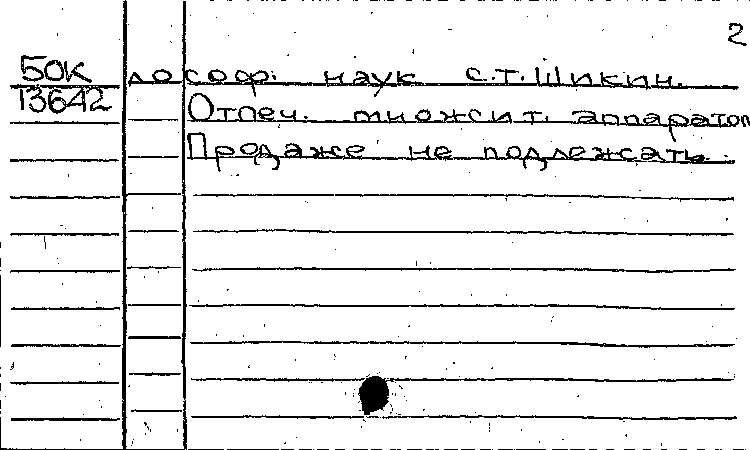 2
50К до соф. наук С.Т. Шикин.
13642 Отпеч. множит. аппаратом
Продаже не подлежсать.